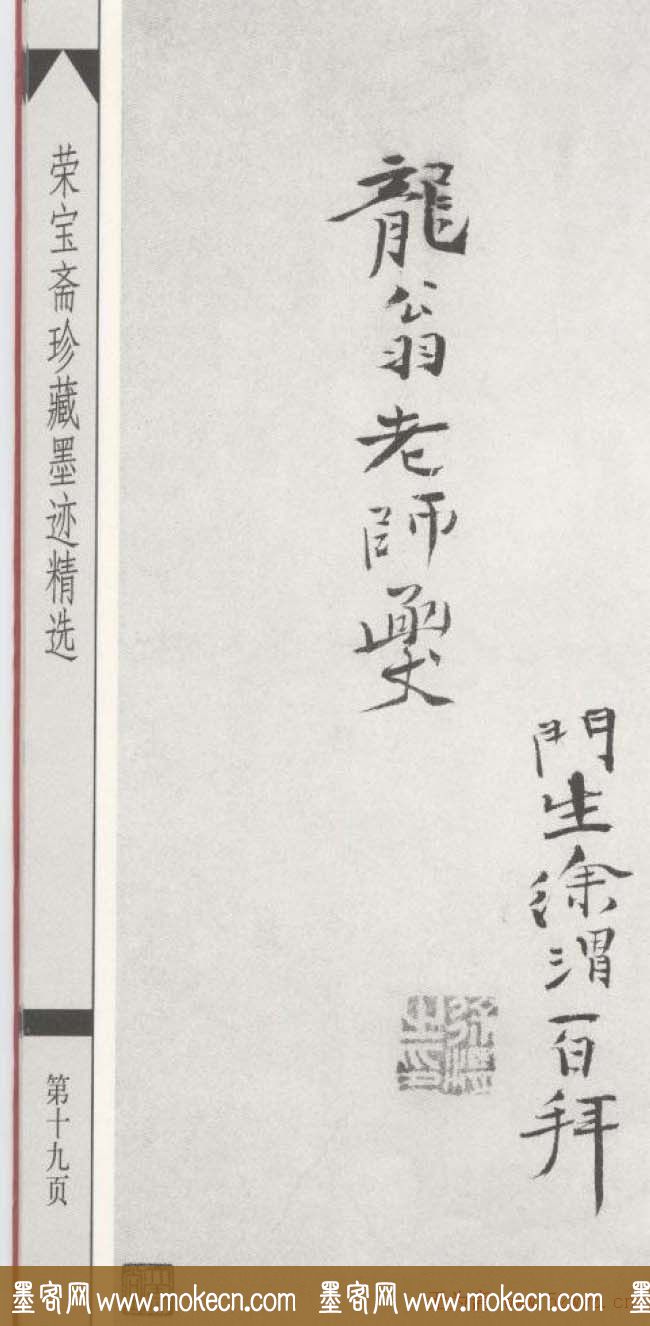 門生徐渭百拜
龍翁老師函丈
荣宝斋珍藏墨迹精选
第十九页
墨客网www.mokecn.com 墨客网www.mokecn.com 墨